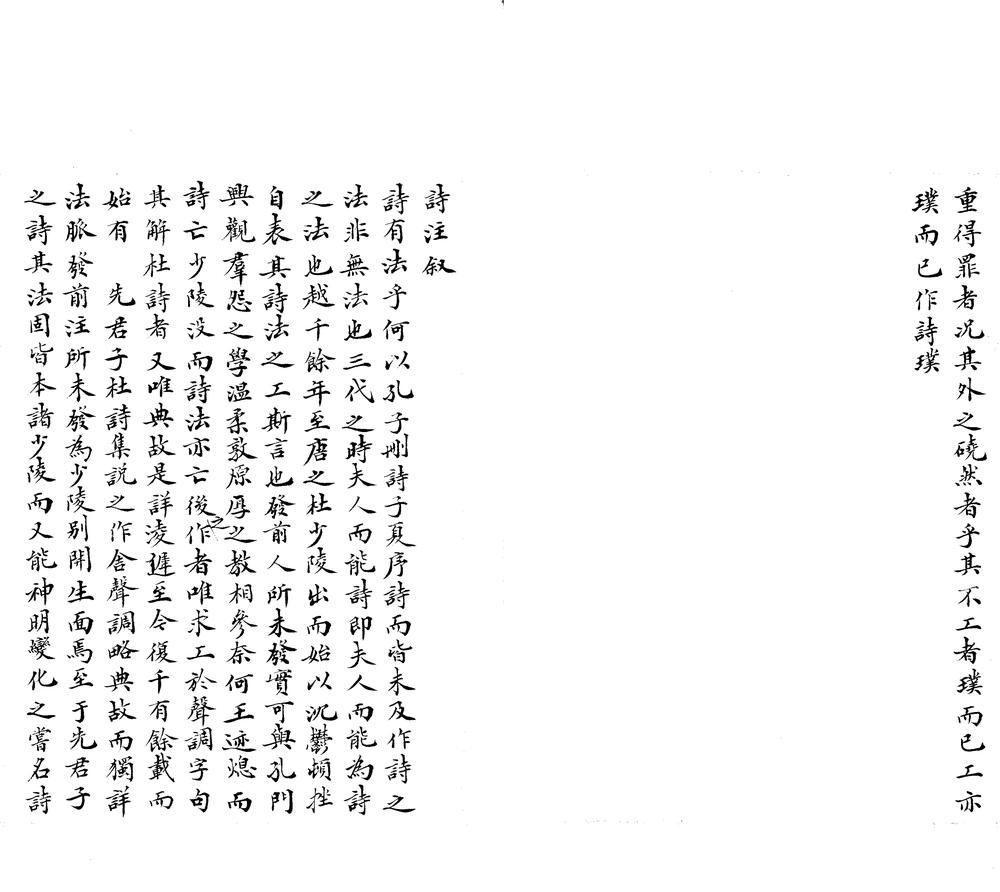 重得罪者况其外之磽然者乎其不工者璞而已工亦
璞而已作詩璞
詩注叙
詩有法乎何以孔子刪詩子夏序詩而皆未及作詩之
法非無法也三代之時夫人而能詩即夫人而能為詩
之法也越千餘年至唐之杜少陵出而始以沉鬱頓挫
自表其詩法之工斯言也發前人所未發實可與孔門
興觀羣怨之學溫柔敦厚之教相參奈何王迹熄而
詩亡少陵没而詩法亦亡後之作者唯求工於聲調字句
其解杜詩者又唯典故是詳淩遲至今復千有餘載而
始有 先君子杜詩集説之作舍聲調略典故而獨詳
法脈發前注所未發為少陵别開生面焉至于先君子
之詩其法固皆本諸少陵而又能神明變化之嘗名詩